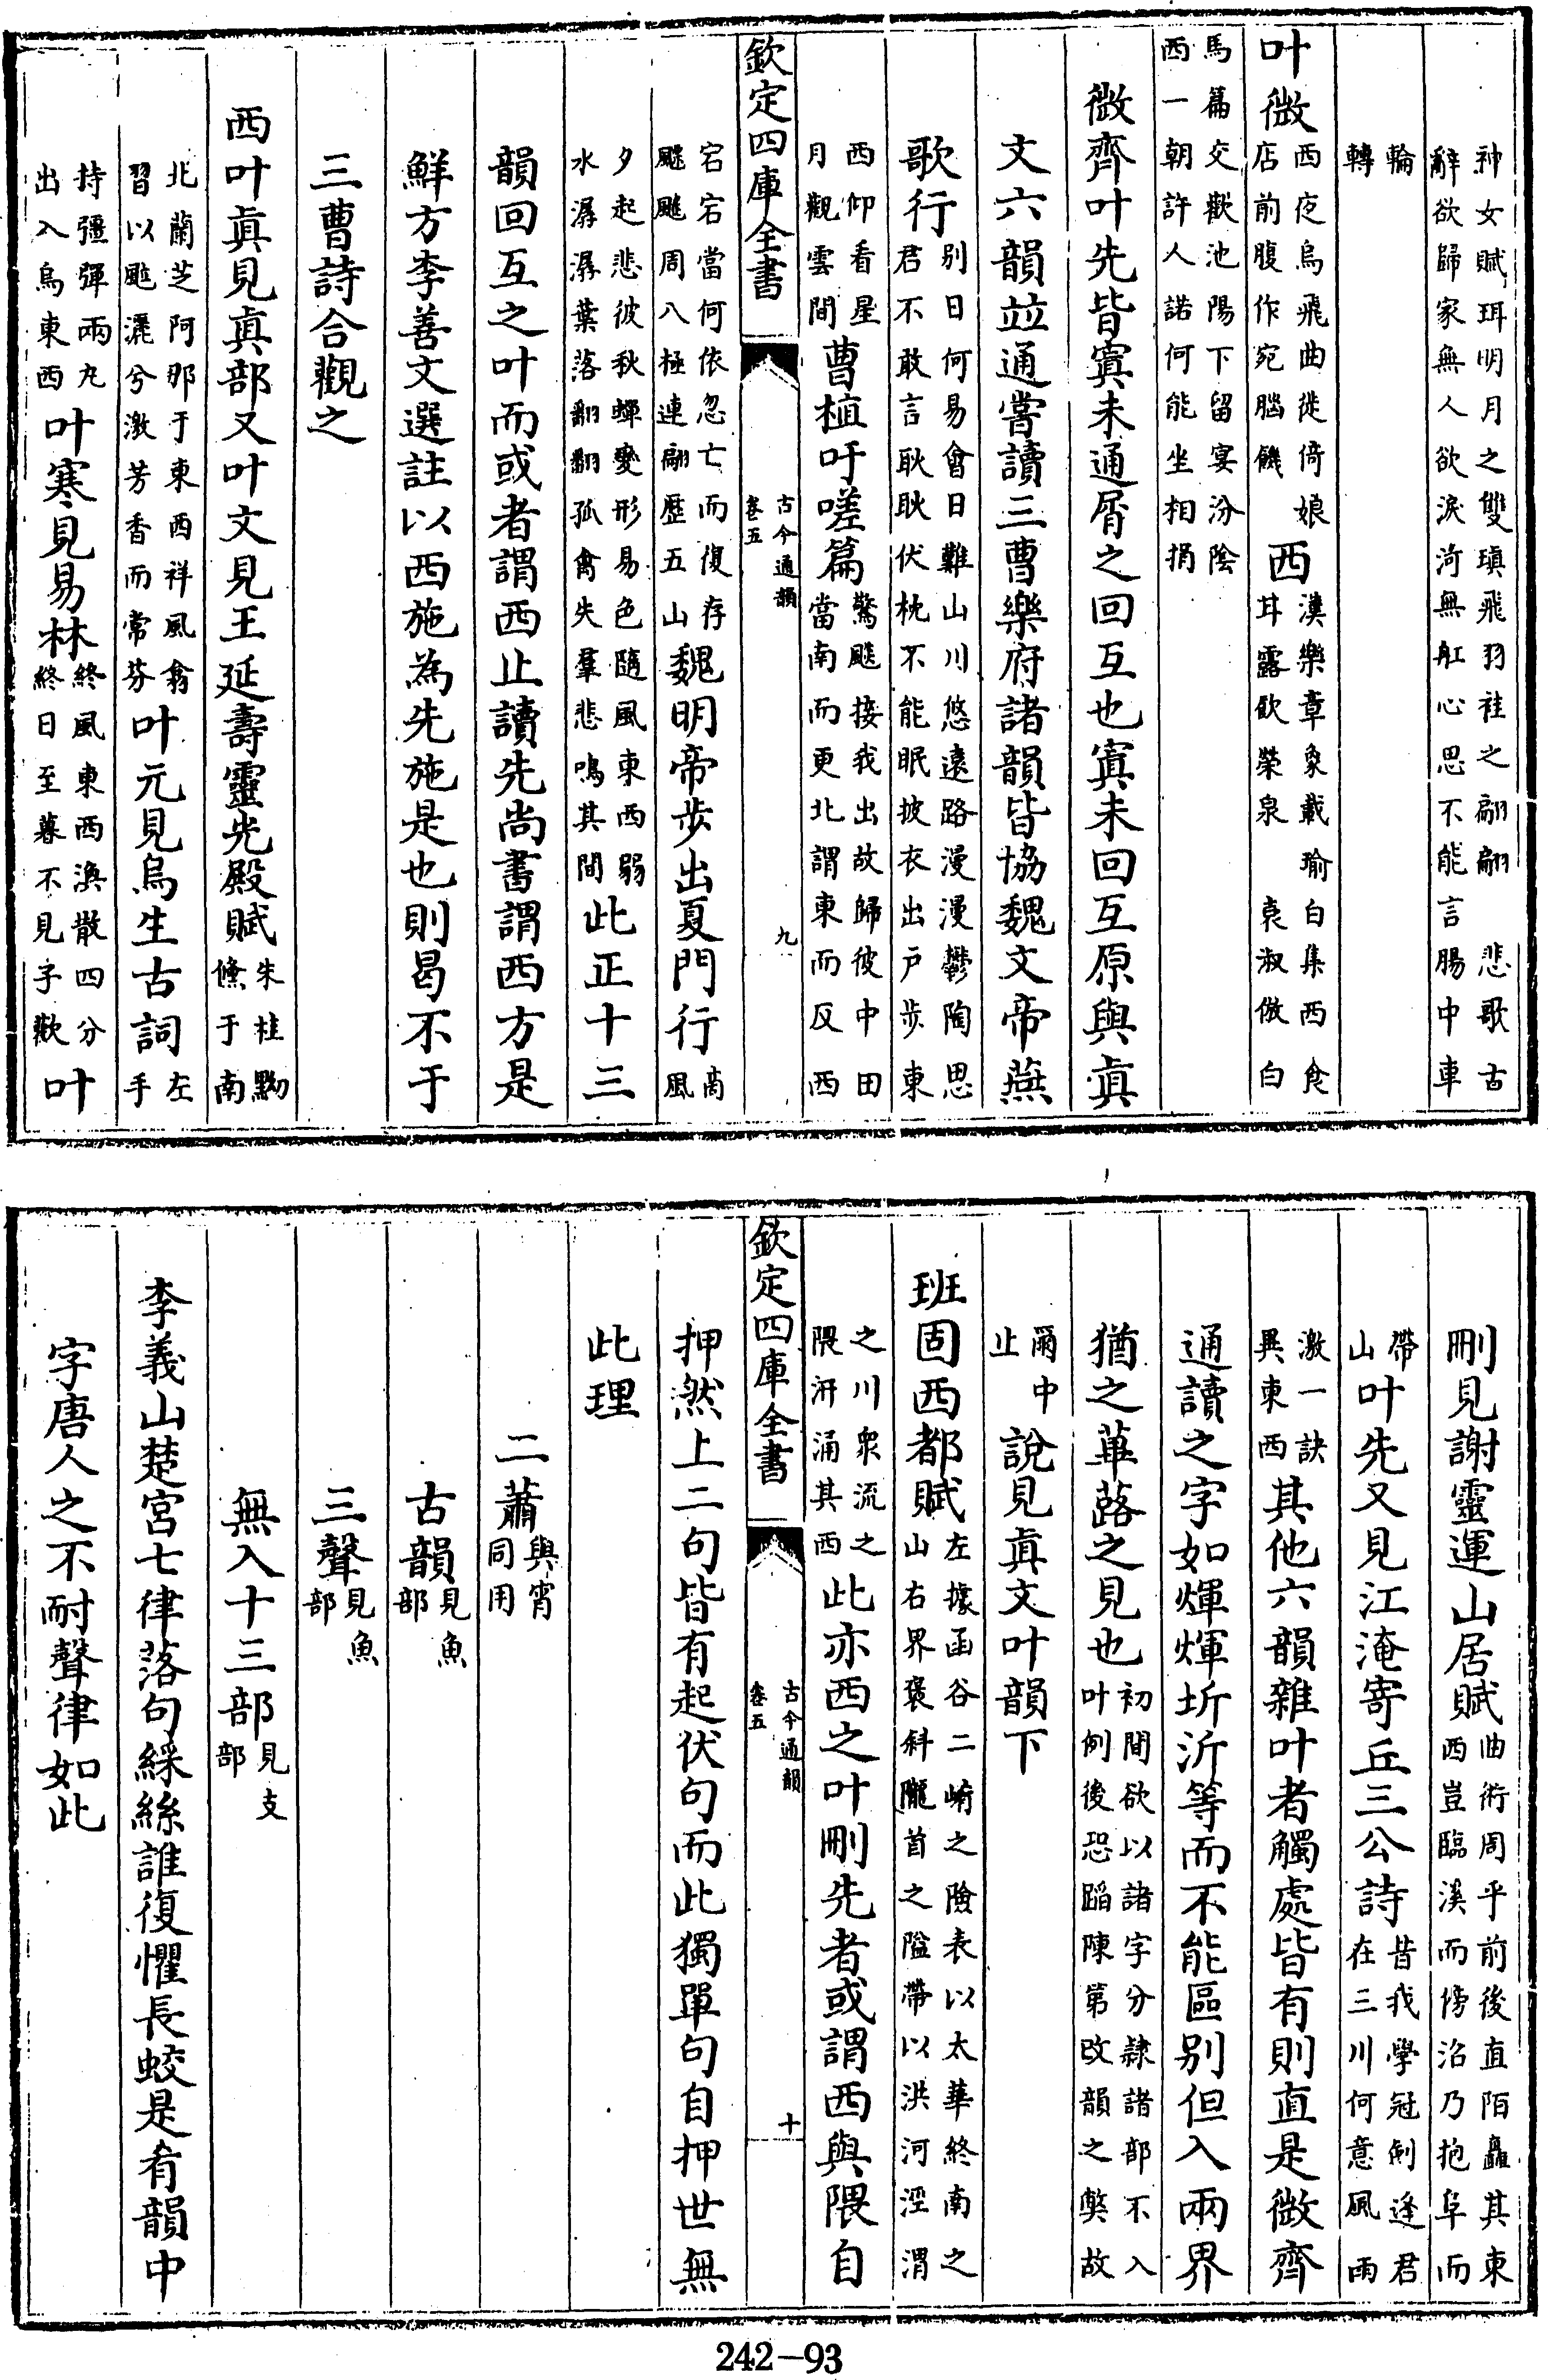 神女賦珥明月之雙瑱飛羽袿之翩翩　悲歌古
辭欲歸家無人欲淚河無舡心思不能言腸中車
輪
轉
叶微西夜烏飛曲徙倚娘
店前腹作宛腦饑西漢樂章象載瑜白集西食
甘露飲榮泉　袁淑倣白
馬篇交歡池陽下留宴汾陰
西一朝許人諾何能坐相捐
微齊叶先皆寘未通屑之回互也寘未回互原與眞
文六韻竝通嘗讀三曹樂府諸韻皆協魏文帝燕
歌行别日何易會日難山川悠遠路漫漫鬱陶思
君不敢言耿耿伏枕不能眠披衣出戸歩東
西仰看星
月觀雲間曹植吁嗟篇驚飈接我出故歸彼中田
當南而更北謂東而反西
欽定四庫全書
古今通韻
卷五
九
宕宕當何依忽亡而復存
飈飈周八極連翩歷五山魏明帝步出夏門行商
風
夕起悲彼秋蟬變形易色隨風東西弱
水潺潺葉落翩翩孤禽失羣悲鳴其間此正十三
韻回互之叶而或者謂西止讀先尚書謂西方是
鮮方李善文選註以西施為先施是也則曷不于
三曹詩合觀之
西叶眞見眞部又叶文見王延壽靈光殿賦朱桂黝
儵于南
北蘭芝阿那于東西祥風翕
習以颯灑兮激芳香而常芬叶元見烏生古詞左
手
持彊彈兩丸
出入烏東西叶寒見易林終風東西渙散四分
終日至暮不見子歡叶
刪見謝靈運山居賦曲術周乎前後直陌矗其東
西豈臨溪而傍沿乃抱阜而
帶
山叶先又見江淹寄丘三公詩昔我學冠劍逢君
在三川何意風雨
激一訣
異東西其他六韻雜叶者觸處皆有則直是微齊
通讀之字如煇煇圻沂等而不能區別但入兩界
猶之藍蕗之見也初間欲以諸字分隸諸部不入
叶例後恐蹈陳第改韻之獘故
爾中
止說見眞文叶韻下
班固西都賦左據函谷二崤之險表以太華終南之
山右界褒斜隴首之隘帶以洪河涇渭
之川衆流之
隈汧涌其西此亦西之叶刪先者或謂西與隈自
欽定四庫全書
古今通韻
卷五
十
押然上二句皆有起伏句而此獨單句自押世無
此理
二蕭與宵
同用
古韻見魚
部
三聲見魚
部
無入十三部見支
部
李義山楚宮七律落句綵絲誰復懼長蛟是肴韻中
字唐人之不耐聲律如此
242-93